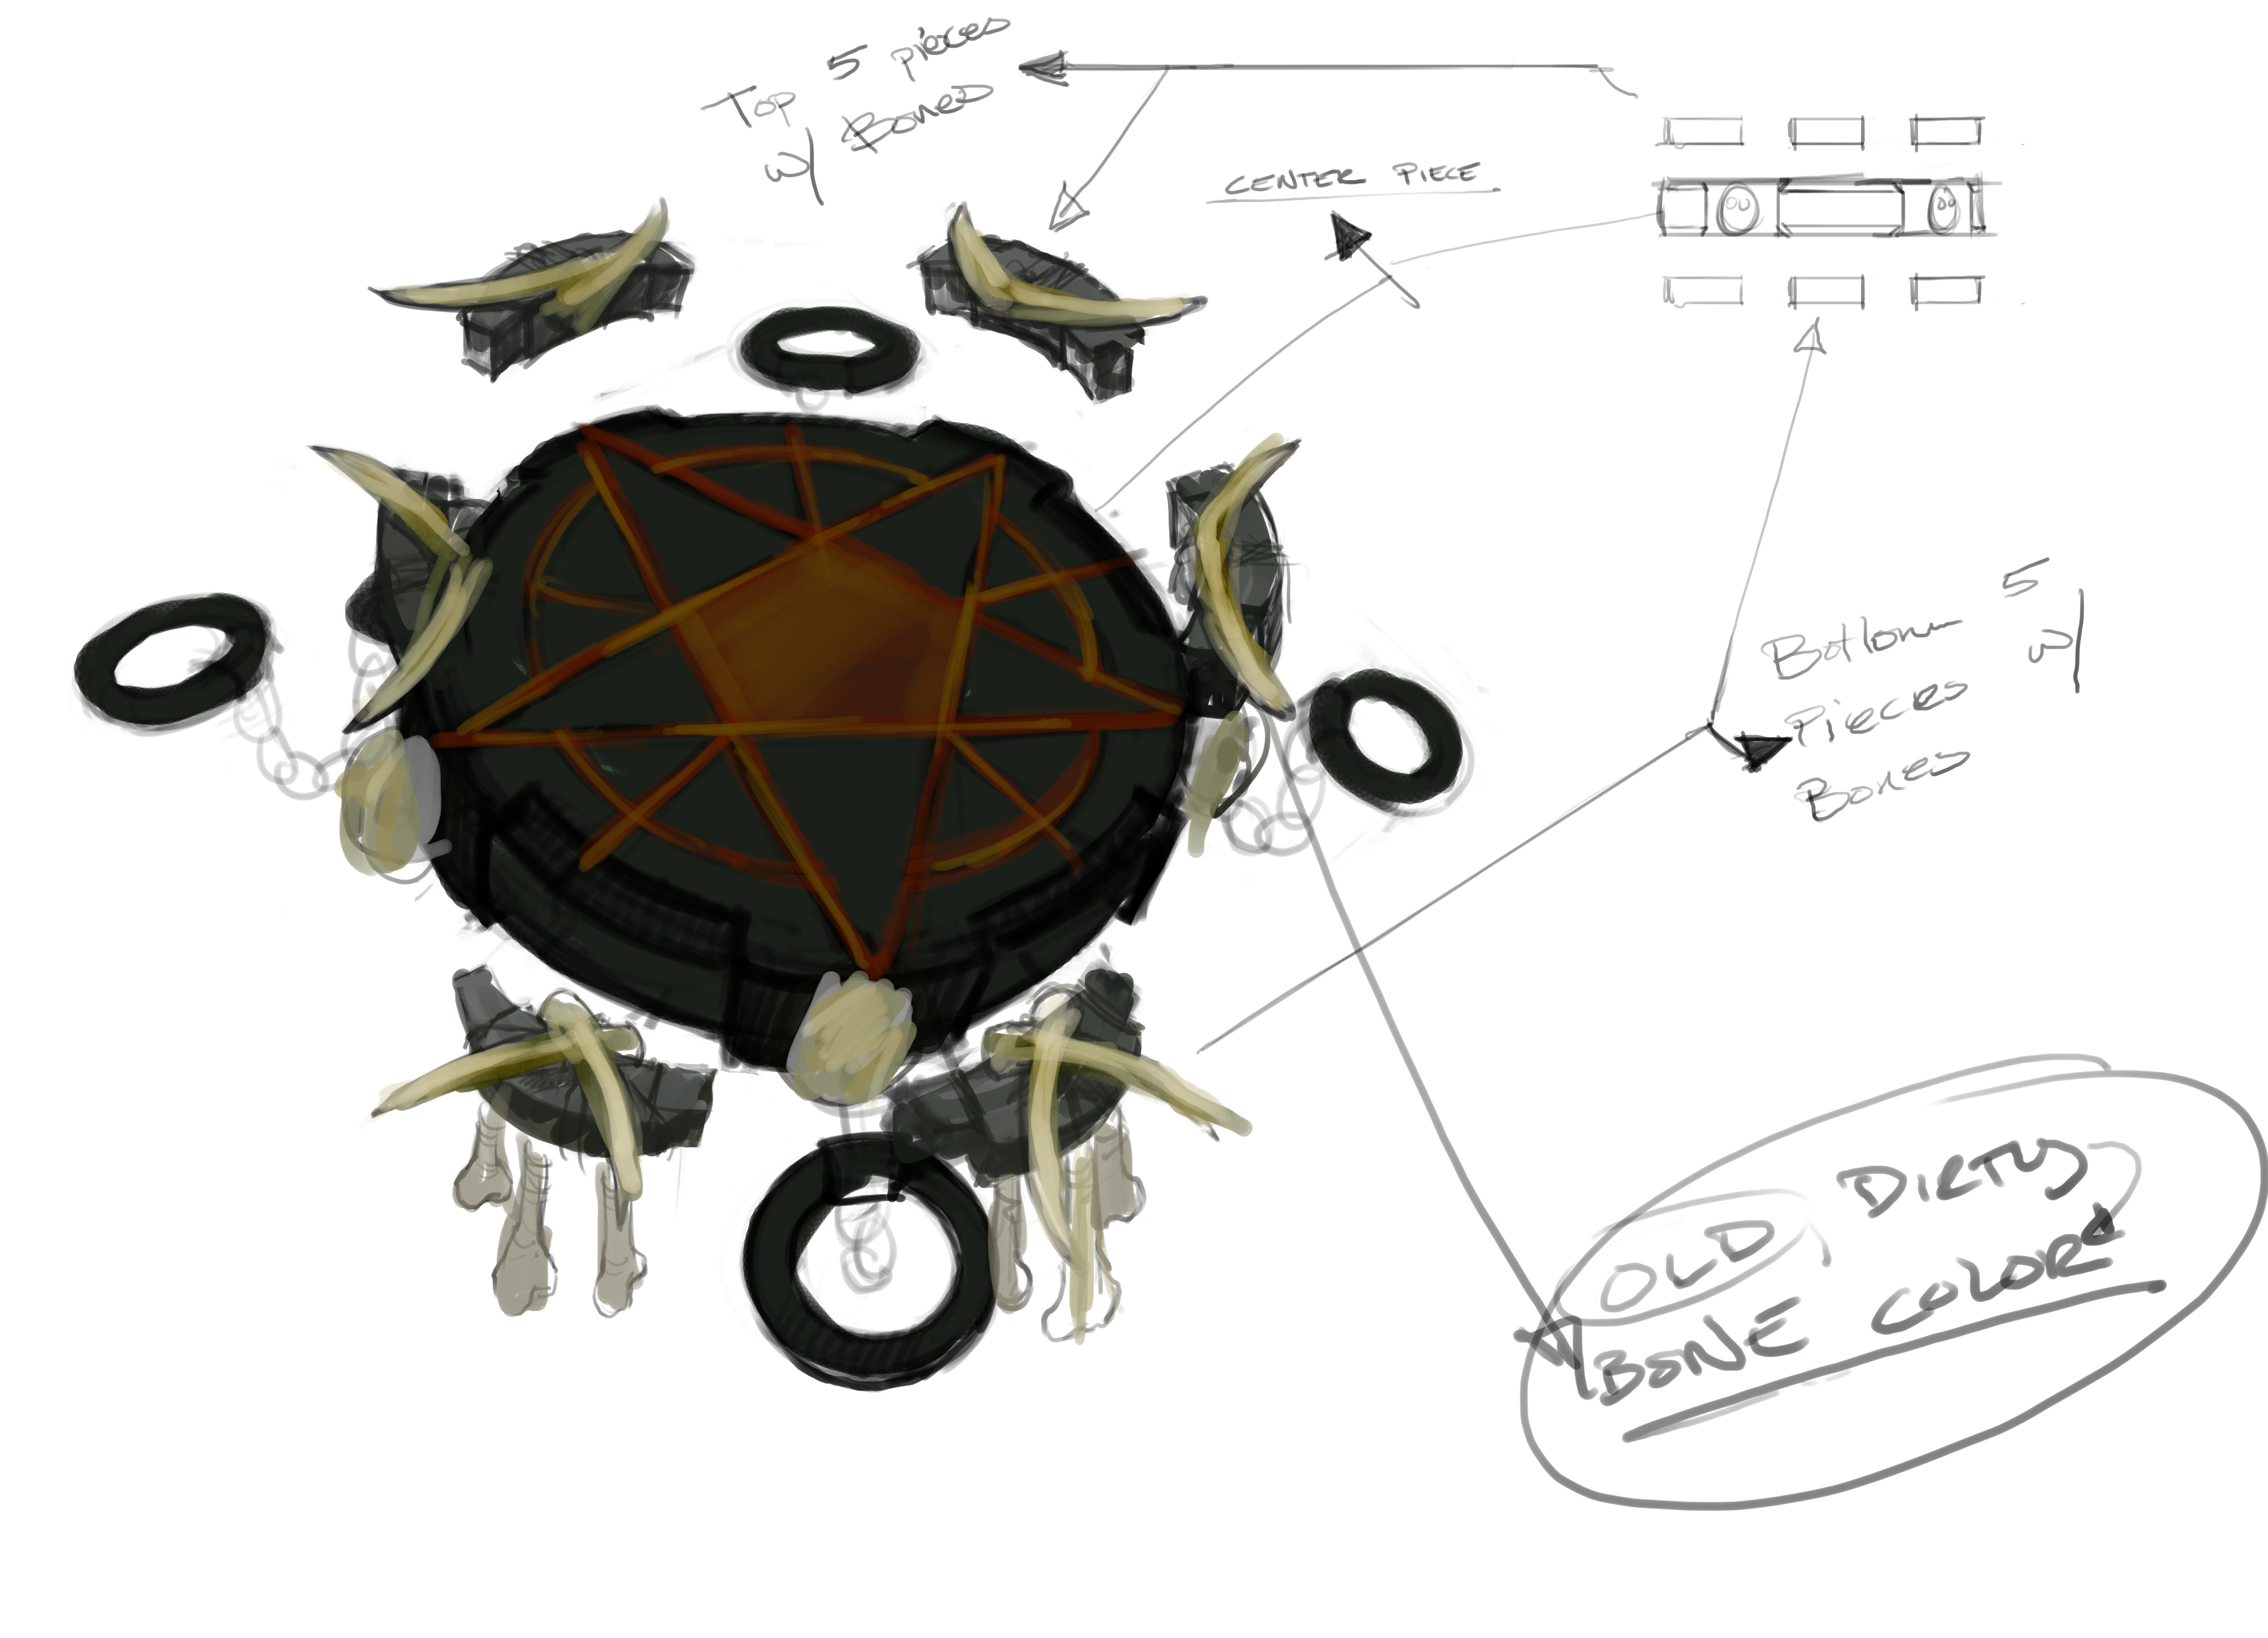 Top 5 pieces
w/ Bones
CENTER PIECE
Bottom 5
Pieces w/
Bones
OLD, DIRTY
BONE COLOR